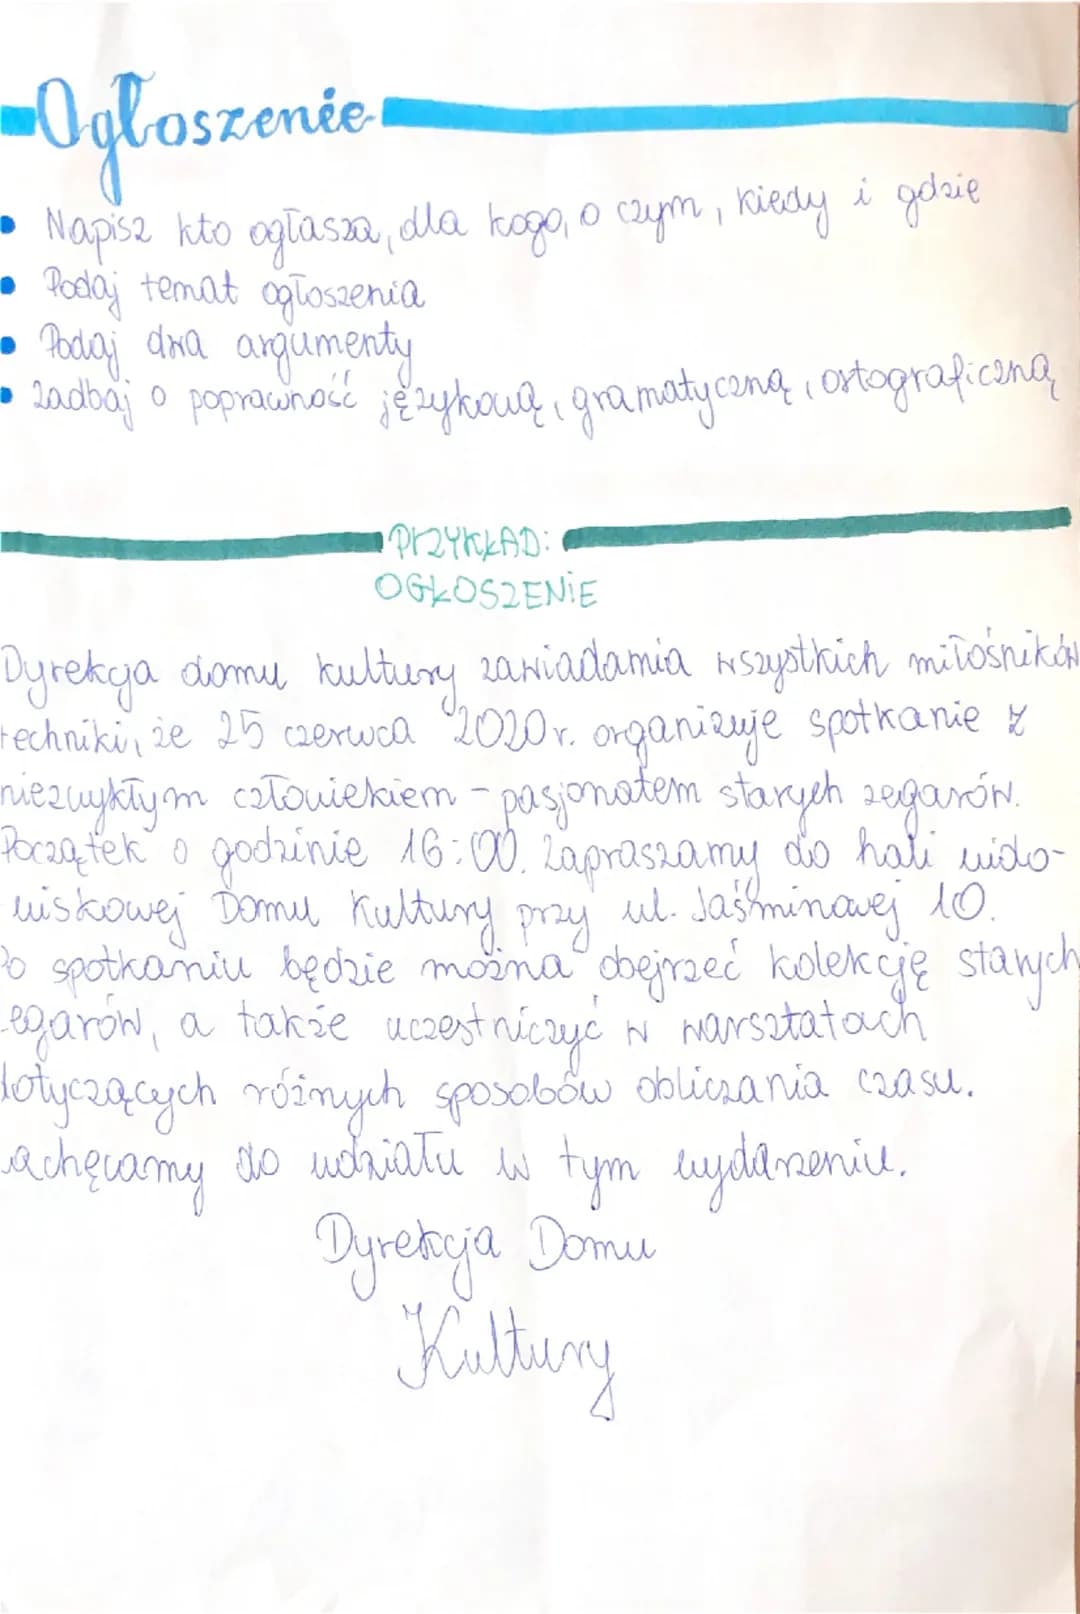 Ogłoszenie
Napisz kto ogłasza, dla kogo, o czym, kiedy i gdzie
Podaj temat ogłoszenia
Podaj dwa argumenty
Zadbaj o poprawność językową, gramatyczną, ortograficzną
PRZYKŁAD:
OGŁOSZENIE
Dyrekcja domu kultury zawiadamia wszystkich miłośników
techniki, że 25 czerwca 2020r. organizuje spotkanie z
niezwykłym człowiekiem - pasjonatem starych zegarów.
Początek o godzinie 16:00. Zapraszamy do hali wido-
wiskowej Domu Kultury przy ul. Jaśminowej 10.
Po spotkaniu będzie można obejrzeć kolekcję starych
egarów, a także uczestniczyć w warsztatach
dotyczących różnych sposobów obliczania czasu.
achęcamy do udziału w tym wydarzeniu.
Dyrekcja Domu
Kultury